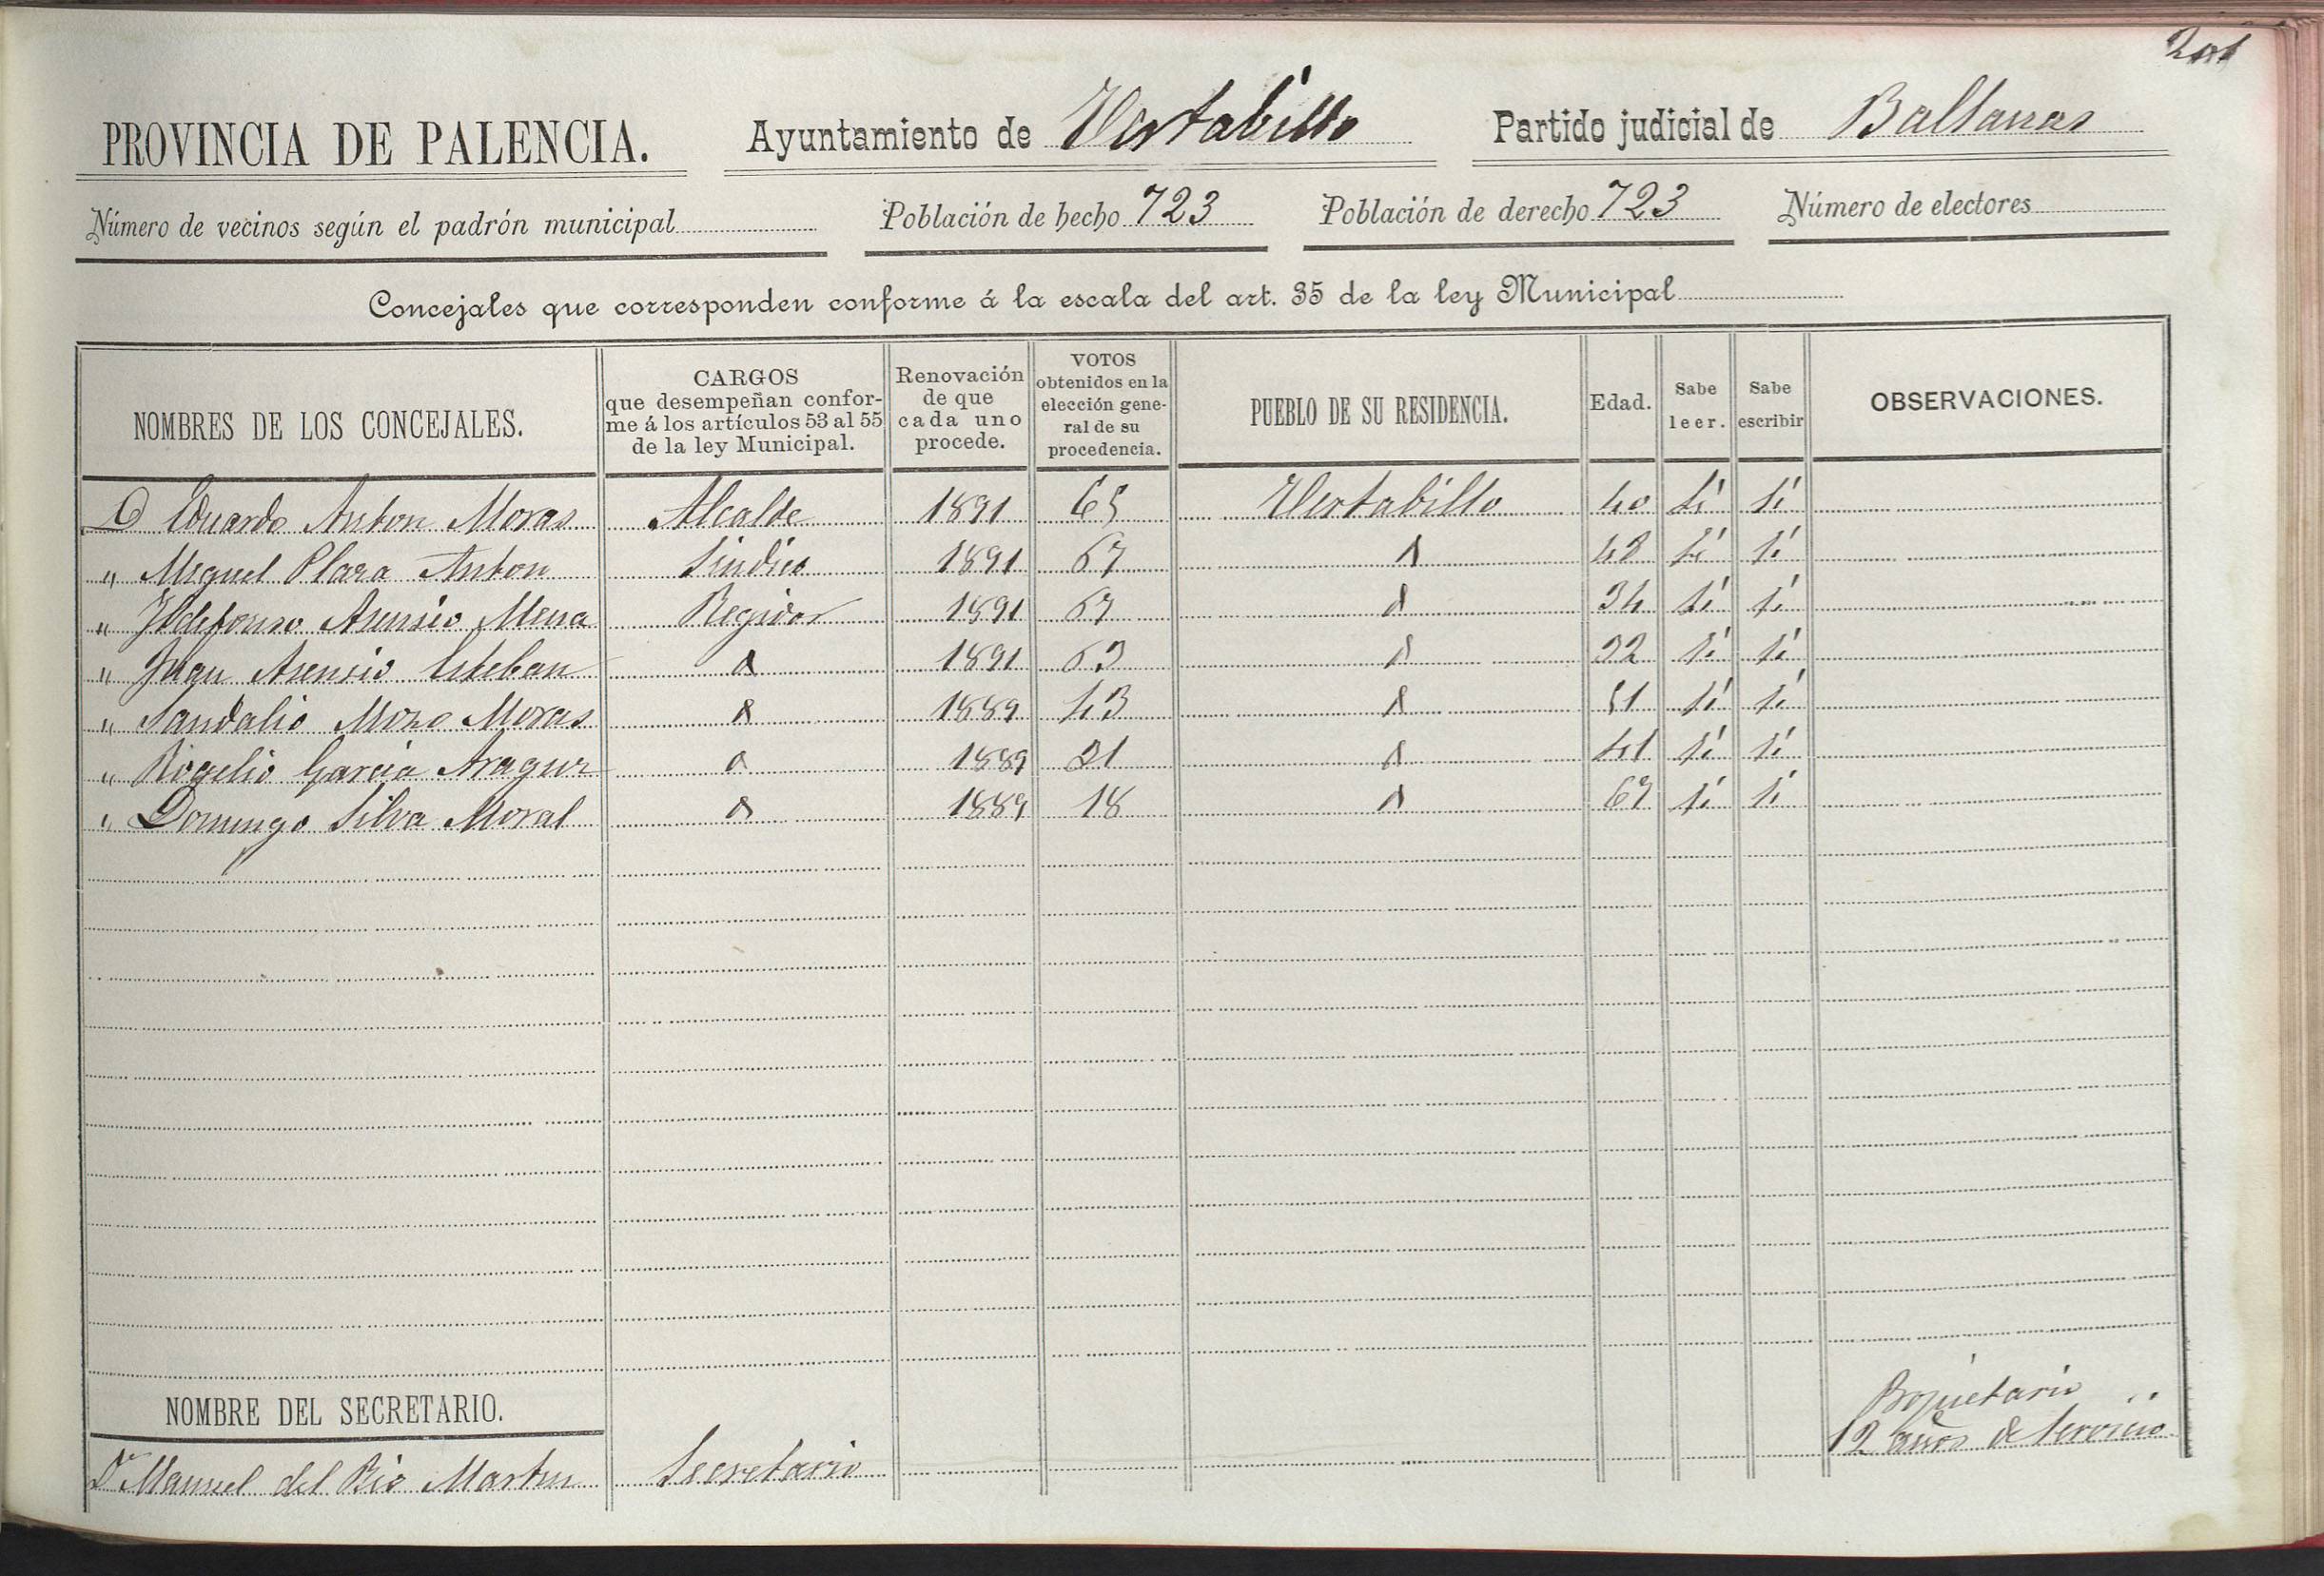 PROVINCIA DE PALENCIA. Ayuntamiento de Vertabillo Partido judicial de Baltanas
Número de vecinos según el padrón municipal Población de hecho 723 Población de derecho 723 Número de electores
Concejales que corresponden conforme á la escala del art. 35 de la ley Municipal
NOMBRES DE LOS CONCEJALES. CARGOS que desempeñan conforme á los artículos 53 al 55 de la ley Municipal. Renovación de que cada uno procede. VOTOS obtenidos en la elección general de su procedencia. PUEBLO DE SU RESIDENCIA. Edad. Sabe leer. Sabe escribir OBSERVACIONES.
D Eduardo Anton Moras Alcalde 1891 65 Vertabillo 40 si si
" Miguel Plaza Anton Sindico 1891 67 " 48 si si
" Yldefonso Asensio Mena Regidor 1891 67 " 34 si si
" Juan Asensio Esteban " 1891 63 " 32 si si
" Sandalio Mozo Moras " 1889 43 " 51 si si
" Rogelio Garcia " 1889 21 " 41 si si
" Domingo Silva Moral " 1889 18 " 67 si si
NOMBRE DEL SECRETARIO.
Dn Manuel del Rio Martin Secretario Propietario
12 años de servicio